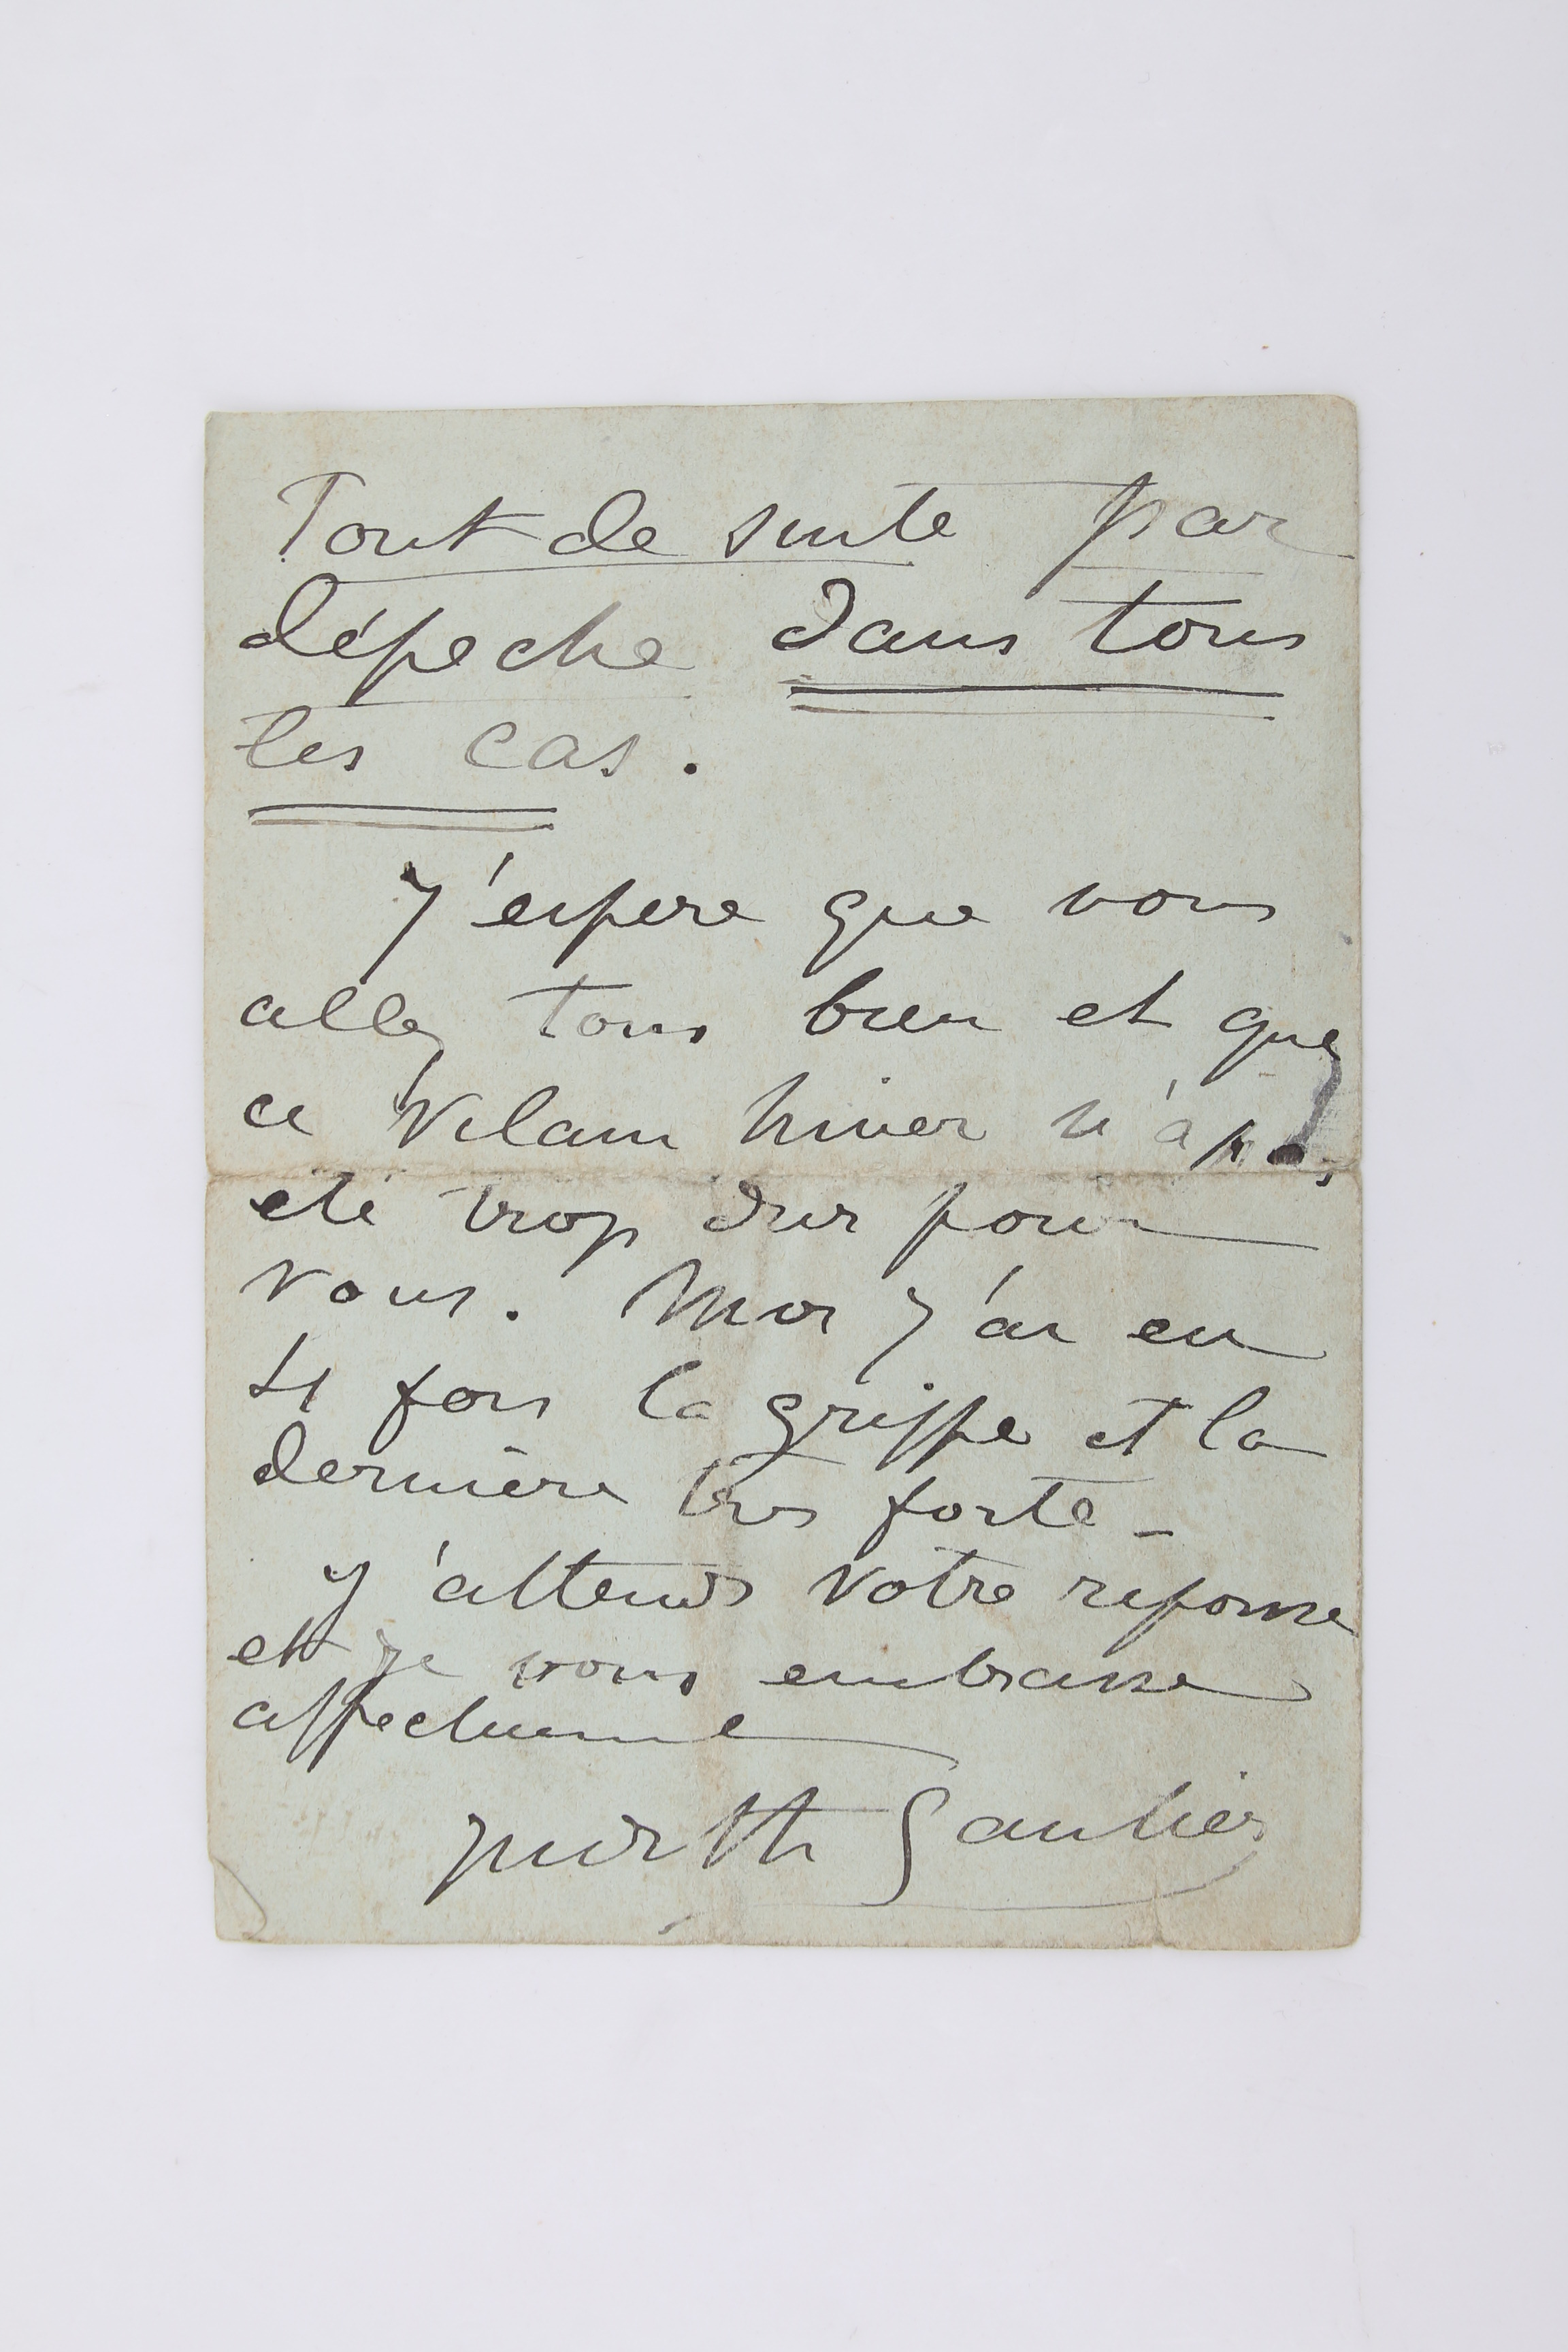 Tout de suite par
dépeche dans tous
les cas.
J'espere que vous
allez tous bien et que
ce vilain hiver n'a pas
été trop dur pour
vous. Moi j'ai eu
4 fois la grippe et la
dernière très forte -
J'attends votre reponse
et je vous embrasse
affectueuse
Judith Gautier